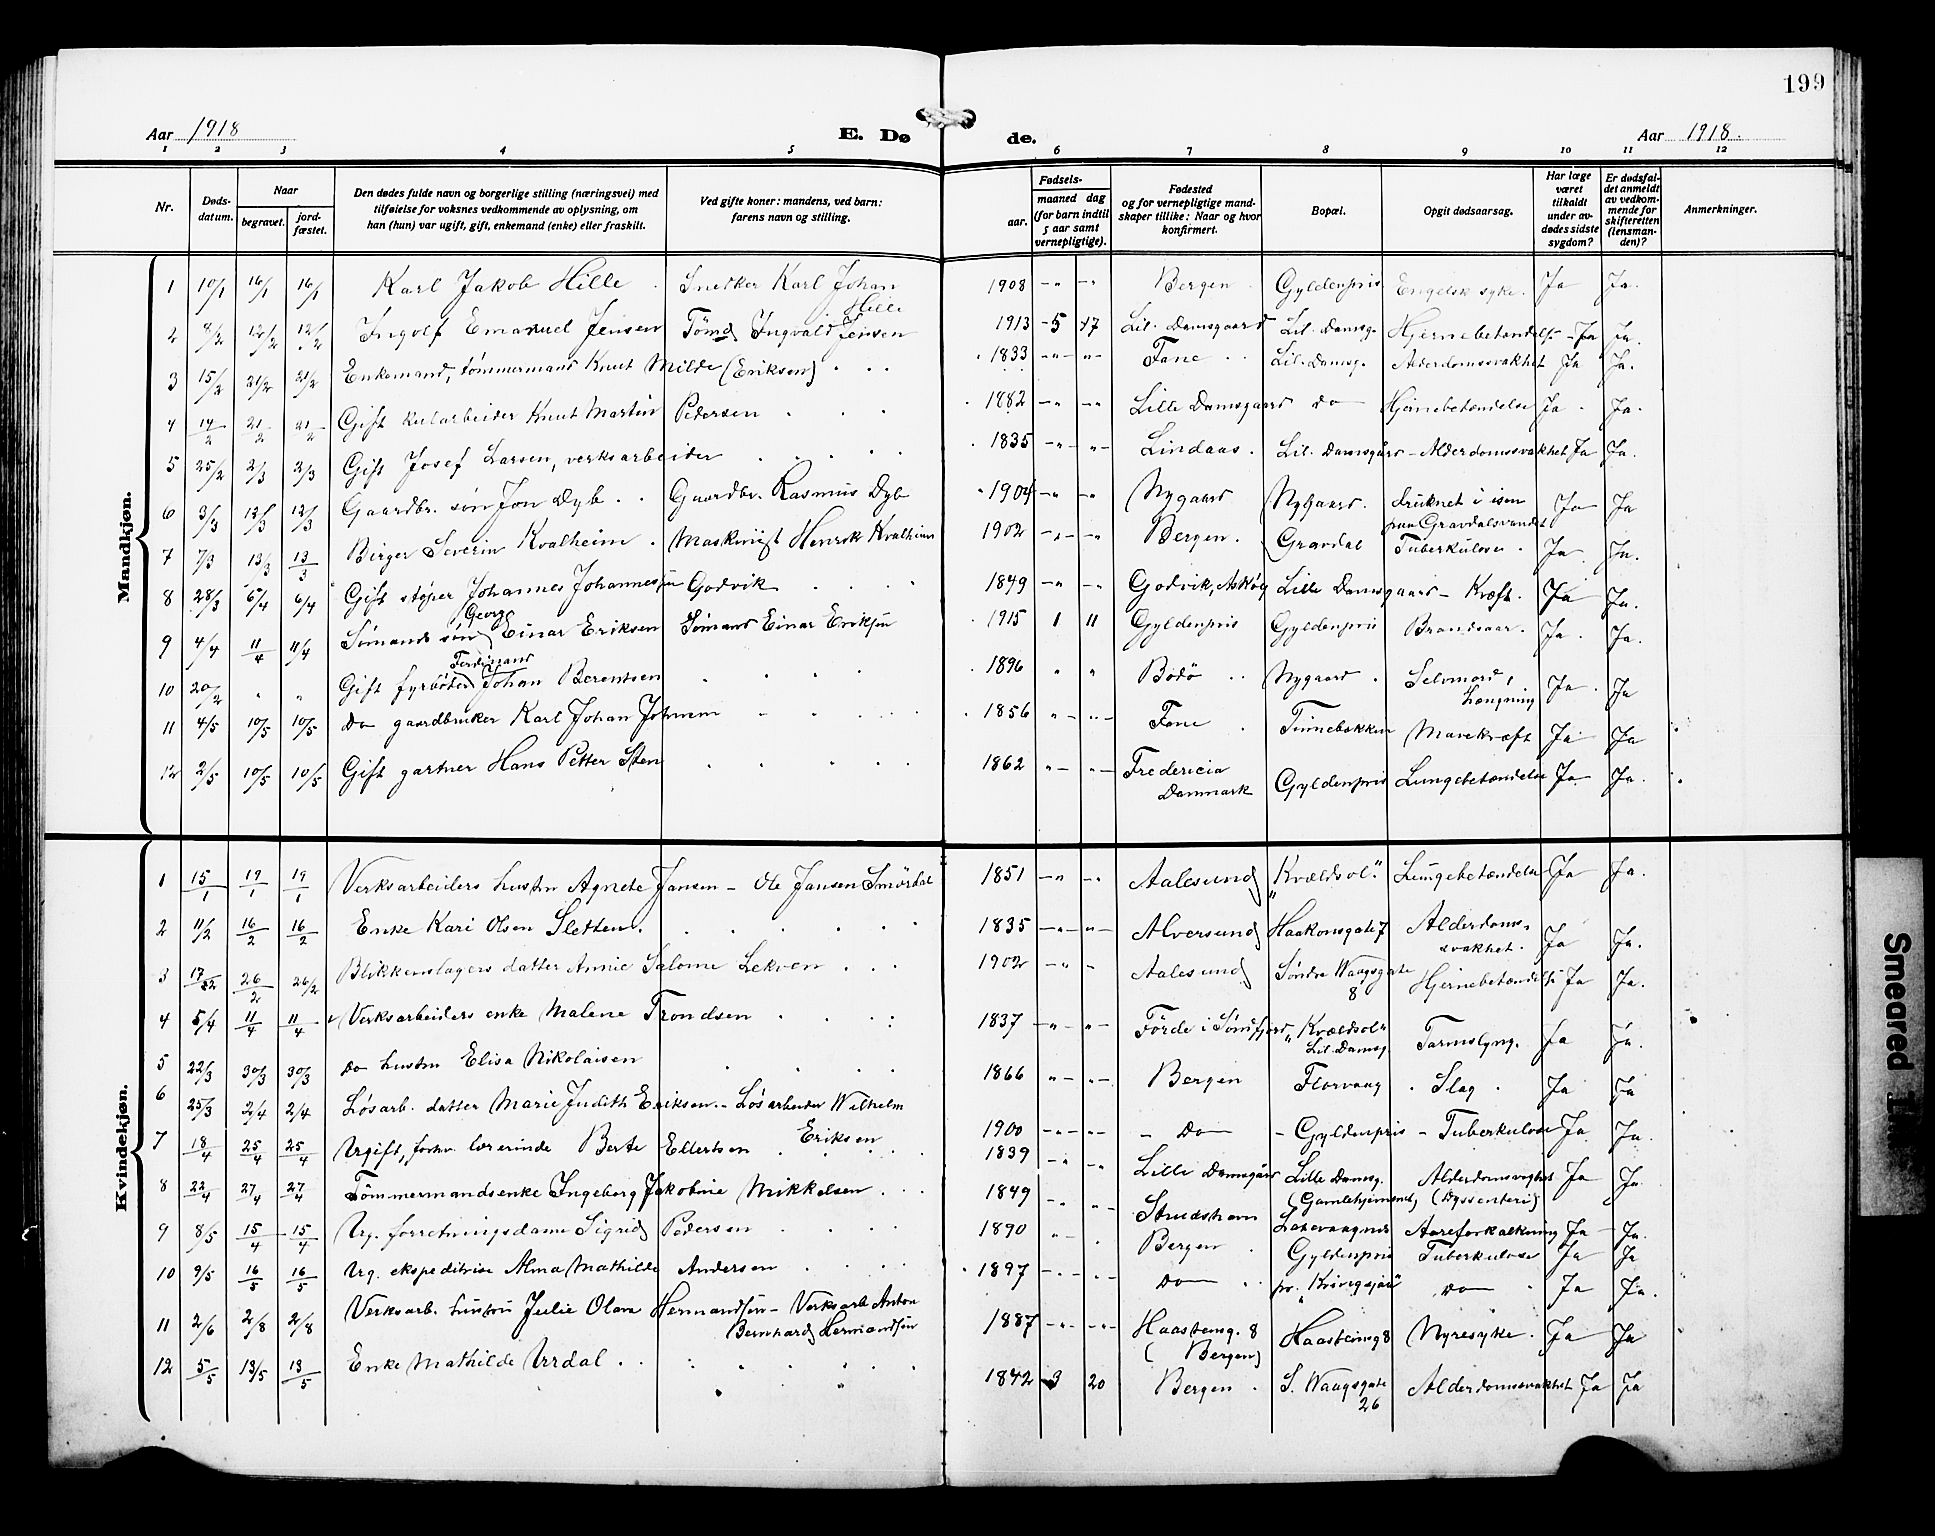 199
Aar 1918
E. Dø
de.
Aar 1918.
1 2 3 4 5 6 7 8 9 10 11 12
Nr.
Døds-
datum.
Naar
begravet.
jord-
fæstet.
Den dødes fulde navn og borgerlige stilling (næringsvei) med
tilføielse for voksnes vedkommende av oplysning, om
han (hun) var ugift, gift, enkemand (enke) eller fraskilt.
Ved gifte koner: mandens, ved barn:
farens navn og stilling.
Fødsels-
aar.
maaned dag
(for barn indtil
5 aar samt
vernepligtige).
Fødested
og for vernepligtige mand-
skaper tillike: Naar og hvor
konfirmert.
Bopæl.
Opgit dødsaarsag.
Har læge
været
tilkaldt
under av-
dødes sidste
sygdom?
Er dødsfal-
det anmeldt
av vedkom-
mende for
skifteretten
(lensman-
den)?
Anmerkninger.
Mandkjøn.
1 10/1 16/1 16/1 Karl Jakob Hille Snetker Karl Johan Hille 1908 Bergen Gyldenpris Engelsk syke. Ja Ja.
2 8/2 12/2 12/2 Ingolf Emanuel Jensen Tømd Ingvald Jensen 1913 5 17 Lil. Damsgaard Lil. Damsg. Hjernebetændelse Ja Ja.
3 15/2 21/2 21/2 Enkemand, tømmermand Knut Milde (Eriksen) 1833 Fane Lil. Damsg. Alderdomssvakhet Ja Ja.
4 14/2 21/2 21/2 Gift kularbeider Knut Martin Pedersen 1882 Lille Damsgaard do Hjernebetændelse Ja Ja.
5 25/2 2/3 2/3 Gift Josef Larsen, verksarbeider 1835 Lindaas. Lil. Damsgård Alderdomssvakhet Ja Ja.
6 3/3 12/3 12/3 Gaardbr. søn Jon Dyb Gaardbr. Rasmus Dyb 1904 Nygaard Nygaard. Druknet i isen
paa Gravdalsvandet Ja Ja
7 7/3 13/3 13/3 Birger Severin Kvalheim Maskinist Henrik Kvalheim 1902 Bergen. Gravdal Tuberkulose Ja Ja.
8 28/3 5/4 6/4 Gift støper Johannes Johannessen Godvik 1849 Godvik, Askøy Lille Damsgaard Kræft. Ja Ja.
9 4/4 11/4 11/4 Sømands søn Georg Einar Eriksen Sømand Einar Eriksen 1915 1 11 Gyldenpris Gyldenpris Brandsaar. Ja. Ja.
10 20/2 " " Gift fyrbøter Ferdinand Johan Berentsen 1896 Bodö Nygaard Selvmord,
hængning Ja. Ja
11 4/5 10/5 10/5 Do gaardbruker Karl Johan Johnsen 1856 Fane Tinnebakken Mavekræft Ja Ja
12 2/5 10/5 10/5 Gift gartner Hans Petter Sten 1862 Fredericia
Danmark Gyldenpris Lungebetændelse Ja Ja.
Kvindekjøn.
1 15/1 19/1 19/1 Verksarbeiders hustru Agnete Jansen - Ole Jansen Smørdal 1851 Aalesund "Kvældsol" Lungebetændelse Ja Ja.
2 11/2 16/2 16/2 Enke Kari Olsen Sletten. 1835 Alversund Haakonsgate 7 Alderdoms-
svakhet. Ja Ja.
3 17/2 26/2 26/2 Blikkenslagers datter Annie Salome Lekven 1902 Aalesund Søndre Waagsgate
8 Hjernebetændelse Ja Ja.
4 5/4 11/4 11/4 Verksarbeiders enke Malene Trondsen 1837 Förde i Søndfjord "Kvældsol"
Lil. Damsg. Tarmslyng. Ja Ja.
5 22/3 30/3 30/3 Do hustru Elisa Nikolaisen 1866 Bergen Florvaag Slag. Ja Ja
6 25/3 2/4 2/4 Løsarb. datter Marie Judith Eriksen - Løsarbeider Wilhelm
Eriksen 1900 Do Gyldenpris Tuberkulose Ja Ja.
7 18/4 25/4 25/4 Ugift, forhv. lærerinde Berte Ellertsen 1839 Lille Damsgård Lille Damsg.
(Gamlehjemmet) Alderdomssvakhet
(Dyssenteri) Ja Ja.
8 22/4 27/4 27/4 Tømmermandsenke Ingeborg Jakobine Mikkelsen 1849 Strudshavn Laxevaagnes Aareforkalkning Ja Ja.
9 8/5 15/4 15/4 Ug. forretningsdame Sigrid Pedersen 1890 Bergen Gyldenpris Tuberkulose Ja Ja
10 9/5 16/5 16/5 Ug. ekspeditrise Alma Mathilde Andersen 1897 Do Do Ja Ja.
11 2/6 2/8 2/8 Verksarb. hustru Julie Olava Hermandsen - Verksarb. Anton
Bernhard Hermandsen 1887 Haasteinsg. 8
(Bergen) Haasteinsg 8 Nyresyke. Ja Ja
12 5/5 13/5 13/5 Enke Mathilde Urdal 1842 3 20 Bergen S. Waagsgate
26 Alderdomssvakhet Ja Ja
Smeared